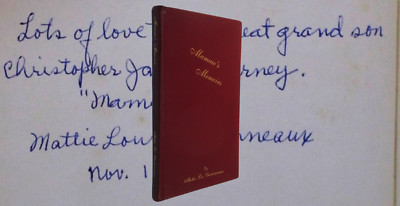 Lots of love eat grand son
Christopher Ja rney.
"Mam
Mattie Lou nneaux
Nov. 1
Mamaw's
Memoirs
By